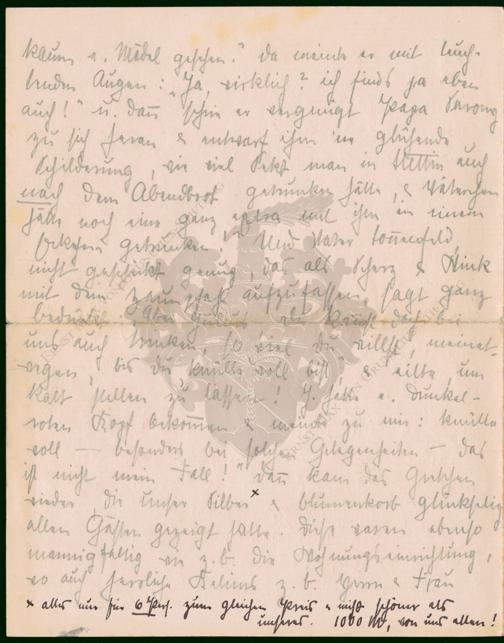 kaum e. Mädel gesehen." Da meinte er mit leuch-
tenden Augen: "Ja, wirklich? ich finds ja eben
auch!" u. dann schrie er vergnügt Papa
zu sich heran & entwarf ihm 'ne glühende
Schilderung, wie viel Sekt man in Stettin auch
nach dem Abendbrot getrunken hätte, & Väterchen
hätte noch eine ganz extra mit ihm in einem
getrunken." Und Vater
nicht geschickt genug, das als Scherz & Wink
mit dem Zaunpfahl aufzufassen, sagt ganz
bedrückt "Aber du kannst doch bei
uns auch trinken so viel du willst, meinet
wegen, bis du knülle voll bist", & eilte, um
kalt stellen zu lassen! J. hatte e. dunkel-
roten Kopf bekommen & meinte zu mir: "knülle
voll — besonders bei solchen Gelegenheiten — das
ist nicht mein Fall!" Dann kam das Gretchen
wieder, die unser Silber x & Blumenkorb glückselig
allen Gästen gezeigt hatte. Diese waren ebenso
mannigfaltig wie z.b. die Wohnungseinrichtung,
wo auch herrliche z.b. Herrn & Frau
x alles nur für 6 Pers. zum gleichen Preis & nicht schöner als
unseres. 1000 M, von uns allen!